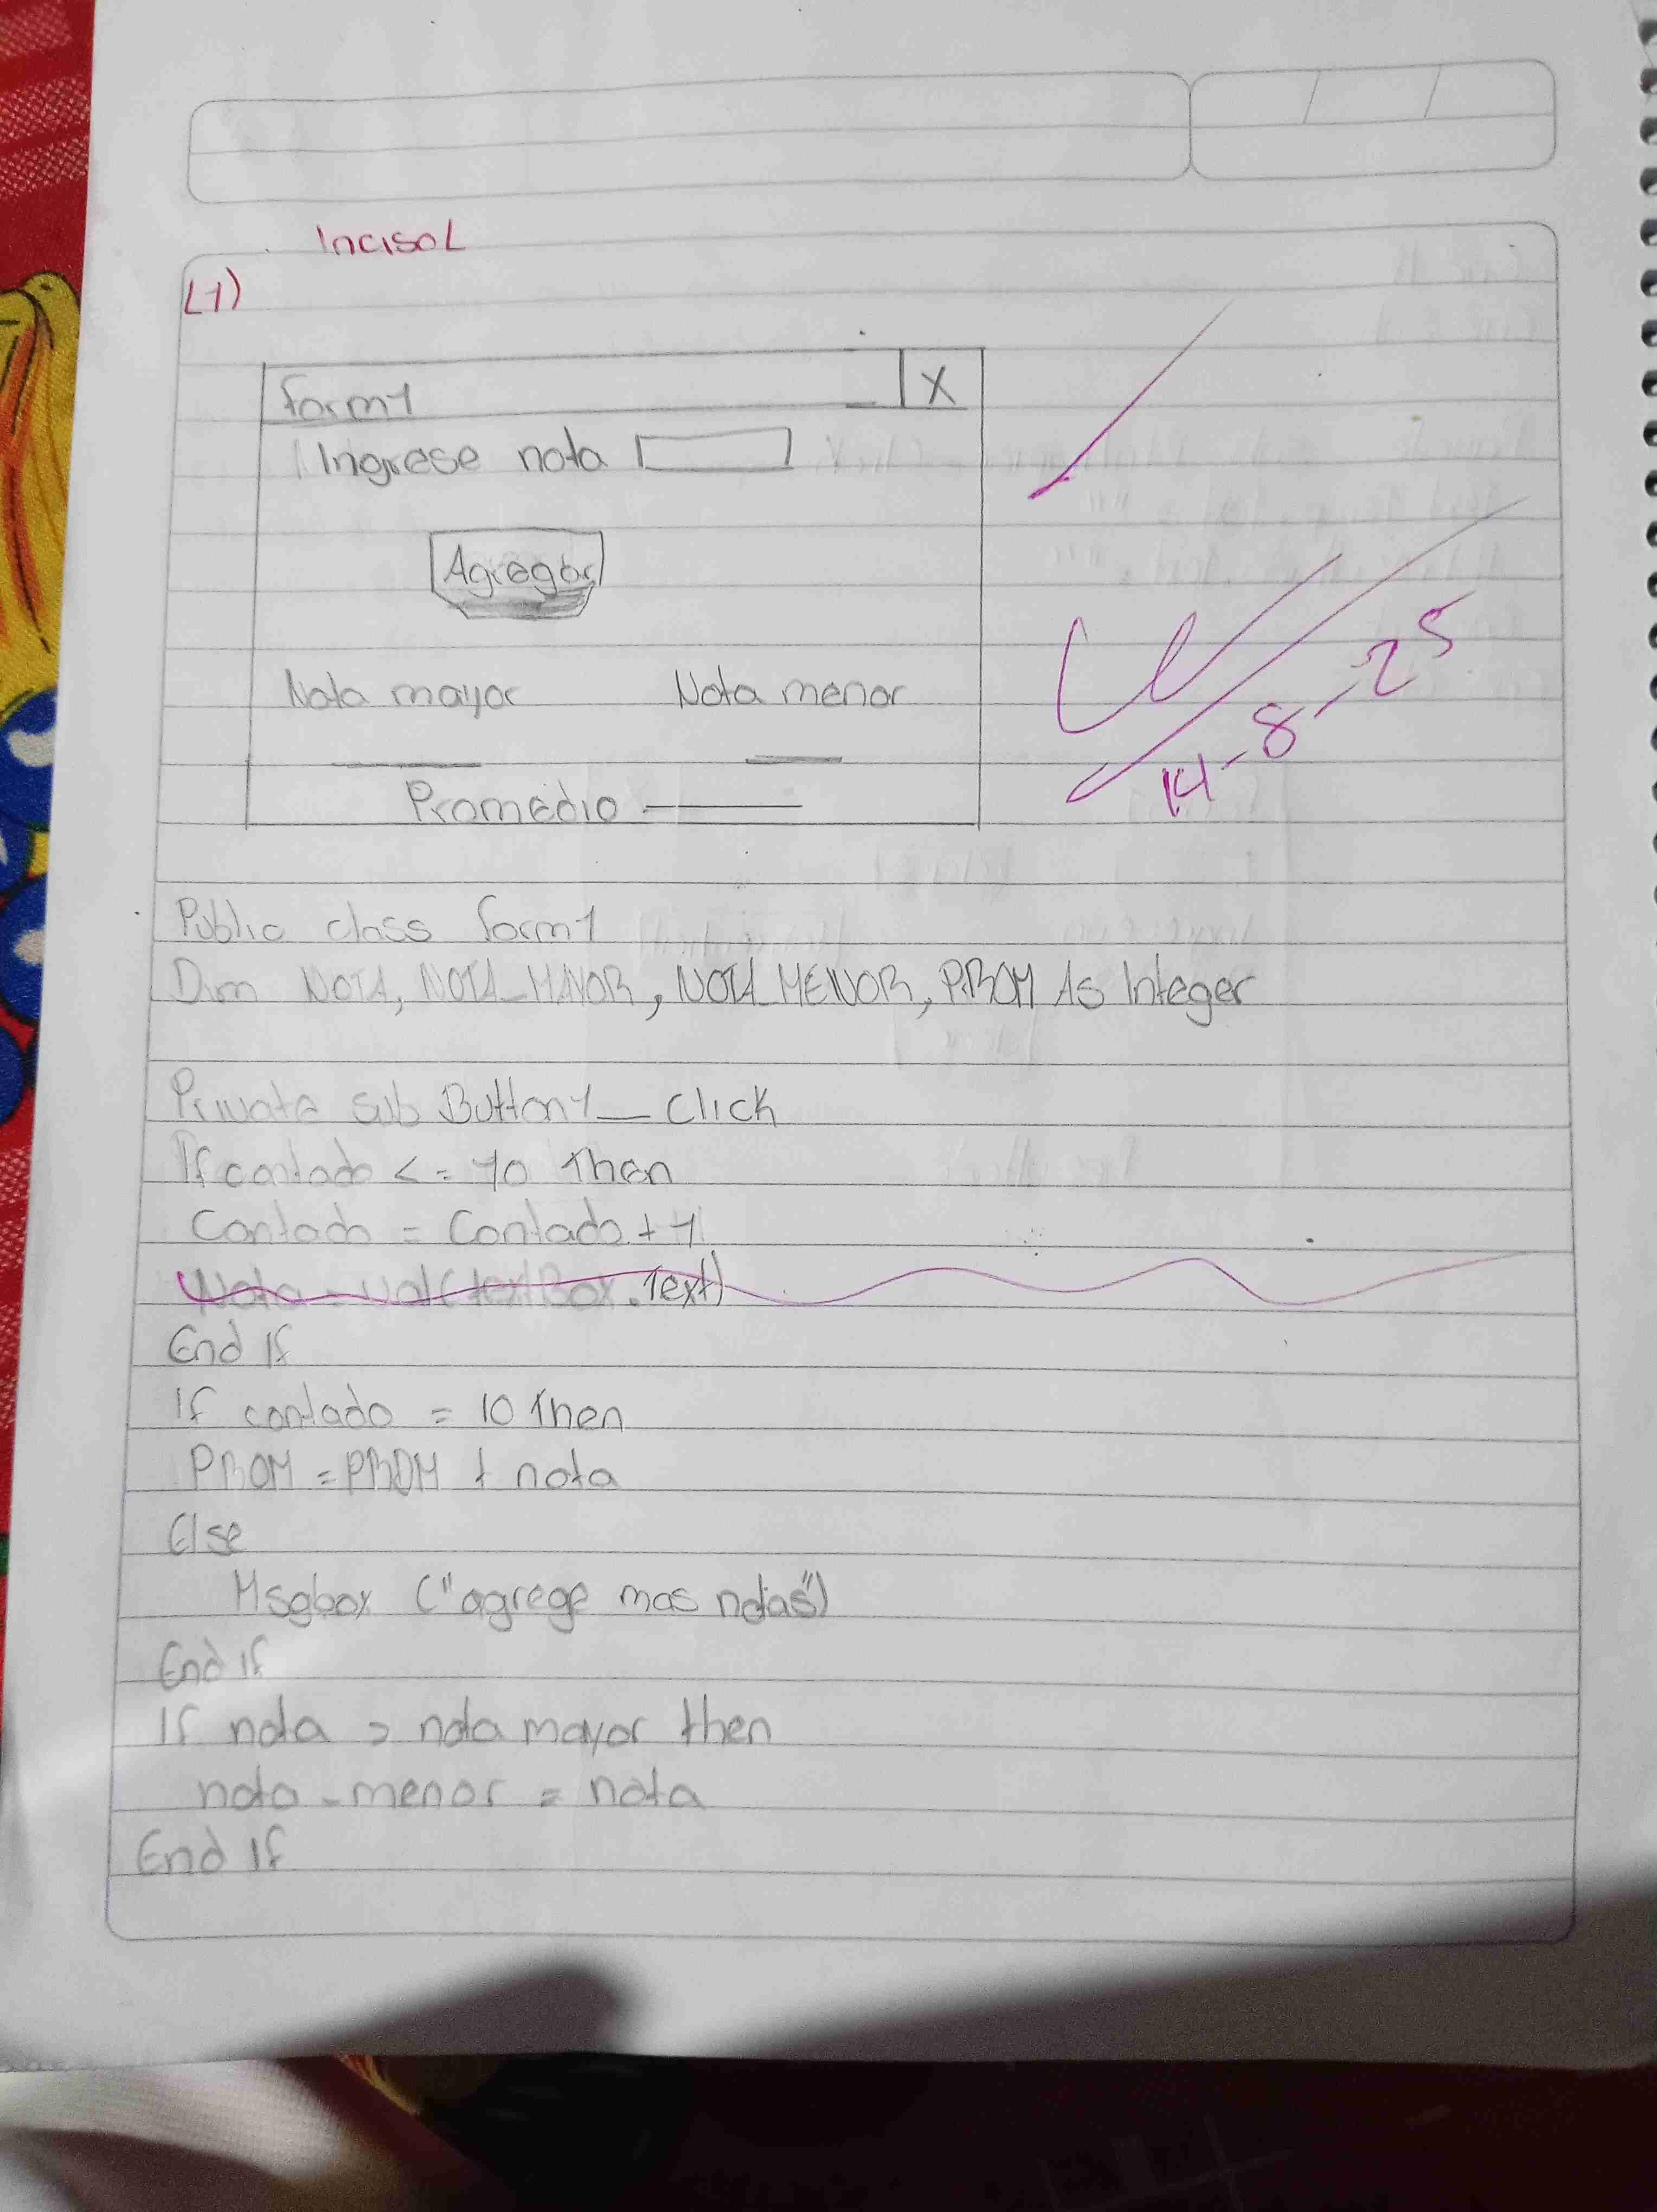 Inciso L
L1)
form1 X
Ingrese nota
Agregar
Nota mayor Nota menor
Promedio
14-8-25
Public class form1
Dim NOTA, NOTA_MAYOR, NOTA_MENOR, PROM As Integer
Private sub Button1_Click
If contado <= 10 Then
Contado = Contado + 1
Nota = val(textBox.Text)
End If
If contado = 10 Then
PROM = PROM + nota
Else
Msgbox ("agrege mas notas")
End if
If nota > nota mayor then
nota-menor = nota
End If